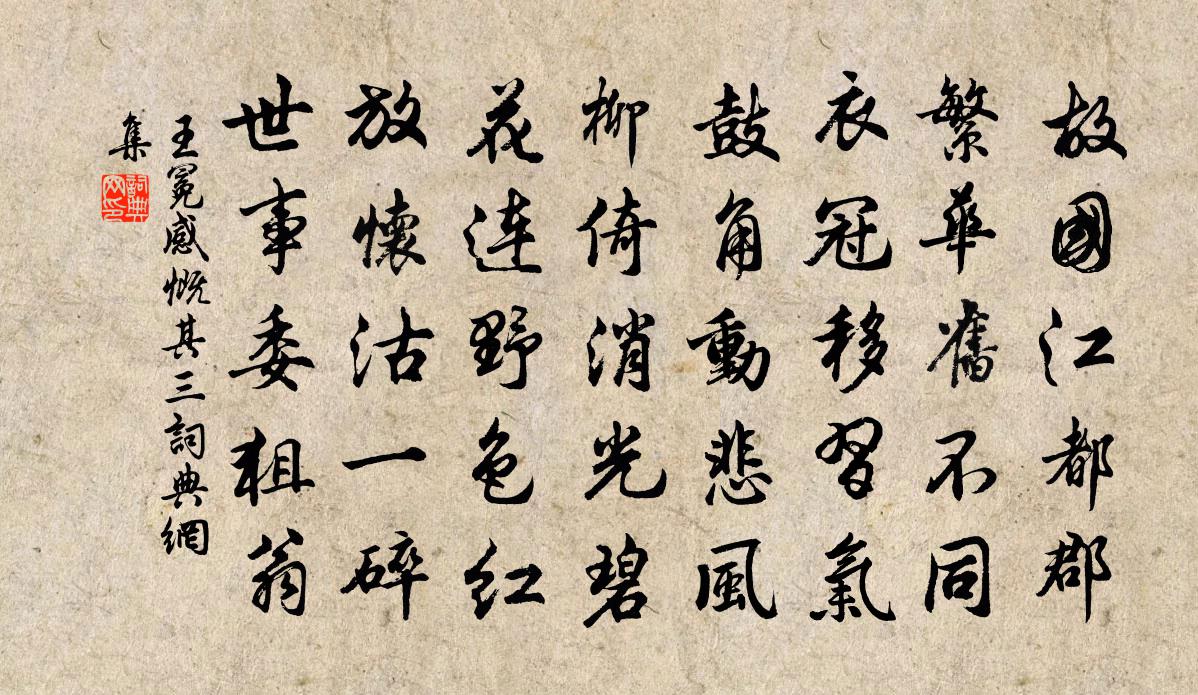 故國江都郡
繁華舊不同
衣冠移習氣
鼓角動悲風
柳倚消光碧
花連野色紅
放懷沽一碎
世事委狙翁
王冕感慨其三詞典網
集
詞典
网印